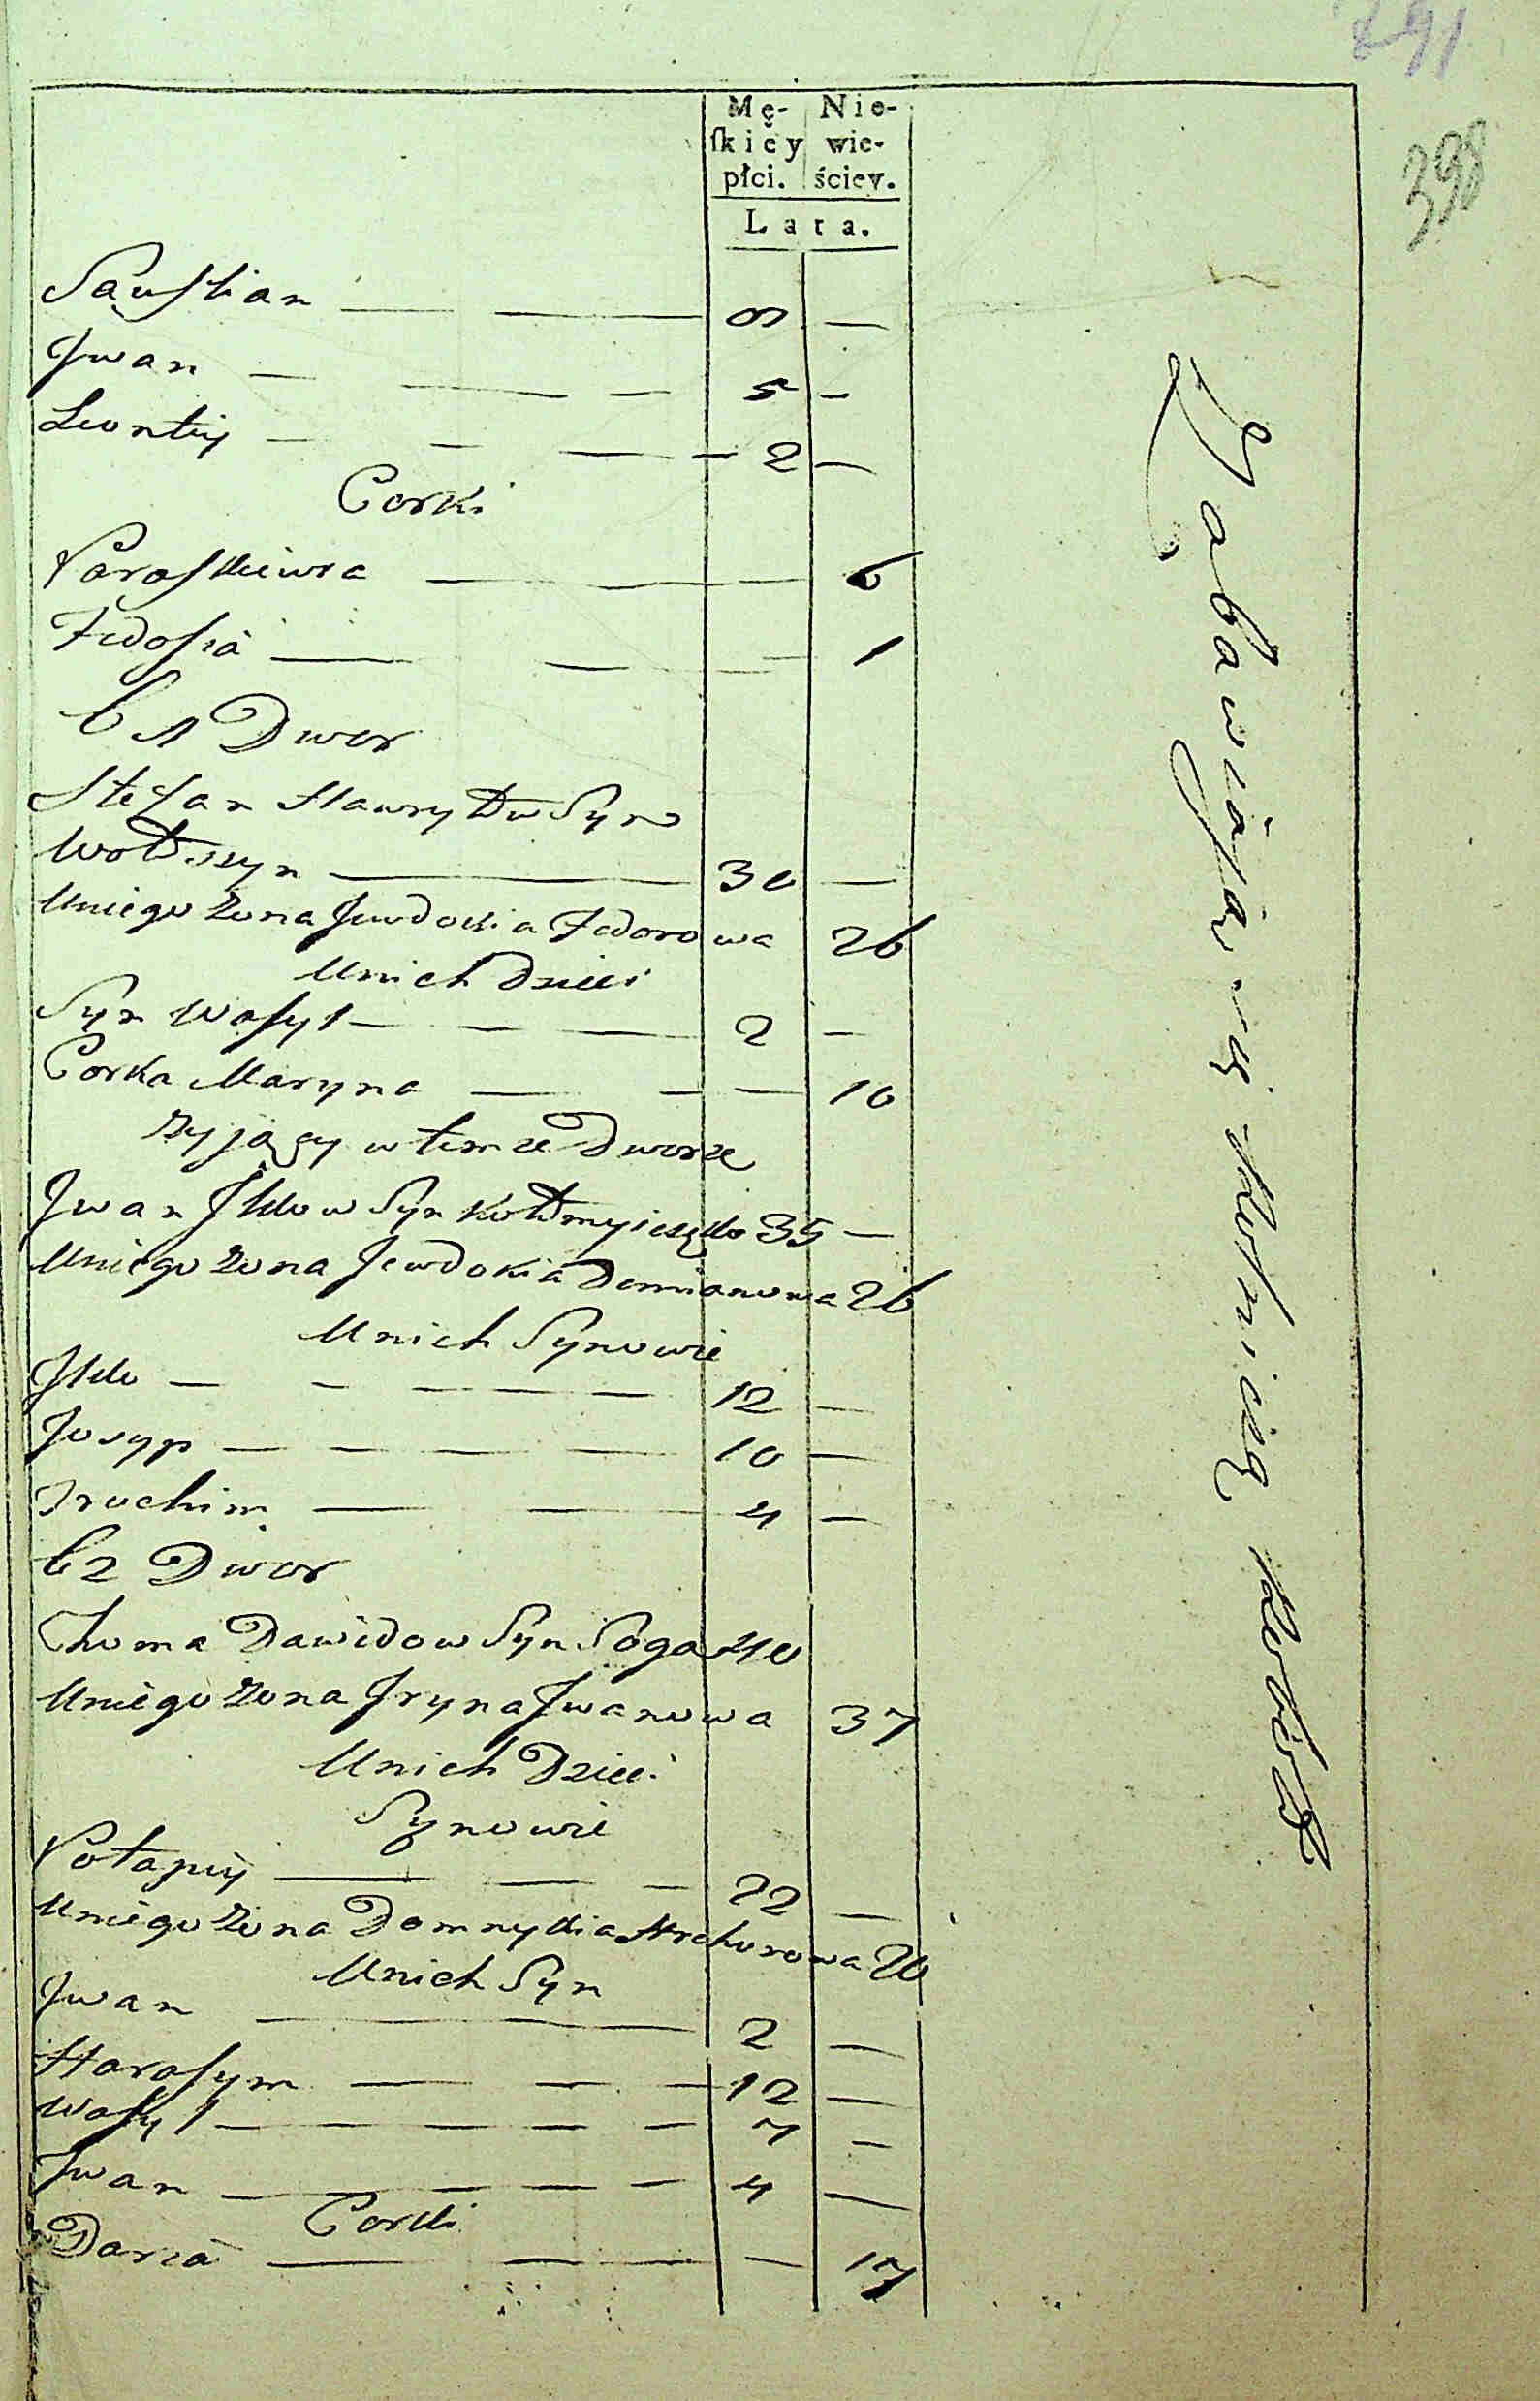 291
398
Mę- Nie-
ſkiey wie-
płci. ściey.
Lata.
Sawſtian — — 8 —
Jwan — — — 5 —
Leontiy — — — 2 —
Corki
Paraſkiewia — — 6
Fedoſia — — — 1
61 Dwor
Stefan Hawryłow Syn
Wołoszyn — 30 —
Uniego Zona Jewdokia Fedorowa 26
Unich Dzieci
Syn Waſyl — — — 2 —
Corka Maryna — — — 10
Zyjący w temze Dworze
Jwan Jlkow Syn Kołomyiczęko 35 —
Uniego Zona Jewdokia Demianowa 26
Unich Synowie
Jlko — — — — — 12 —
Josyp — — — — 10 —
Trochim — — 4 —
62 Dwor
Choma Dawidow Syn Poga 40
Uniego Zona Jryna Jwanowa 37
Unich Dzieci
Synowie
Potapiy — — — 22 —
Uniego Zona Domnykia Prohorowa 20
Unich Syn
Jwan — — — 2 —
Haraſym — — — 12 —
Waſyl — — — — — 7 —
Jwan — — — — 4 —
Corki
Daria — — — — 17
Zabawiaią się Rolnicą Robotą